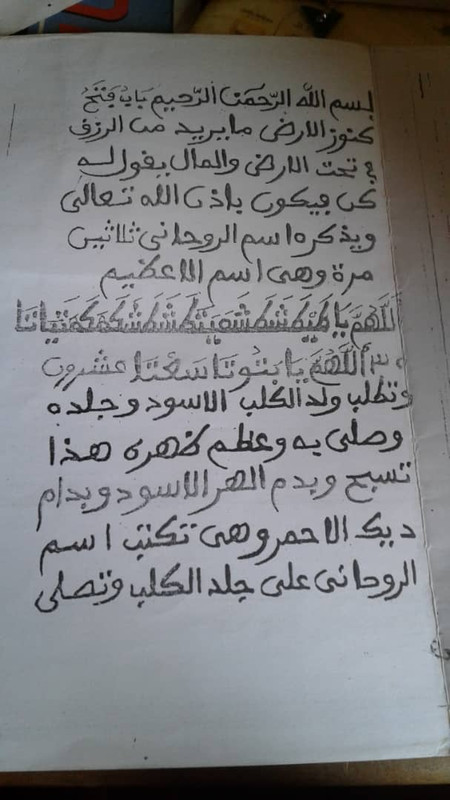 بسم الله الرحمن الرحيم باب فتح
كنوز الارض ما يريد من الرزق
في تحت الارض والمال يقول له
كن فيكون باذن الله تعالى
ويذكره اسم الروحاني ثلاثين
مرة وهي اسم الاعظيم
اللهم يا
٣٠ اللهم يا عشرون
وتطلب ولد الكلب الاسود وجلده
وصلى به وعظم ظهره هذا
تسبح وبدم الهر الاسود وبدام
ديك الاحمر وهي تكتب اسم
الروحاني على جلد الكلب وتصلى